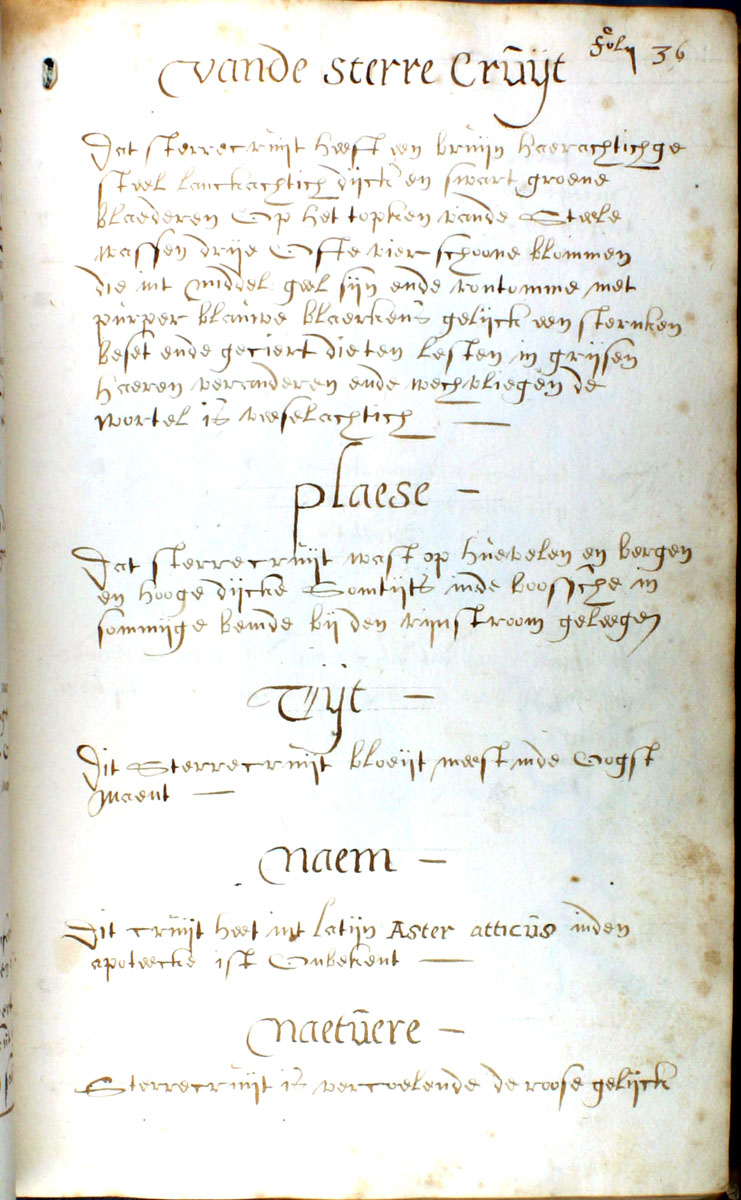 fol 36
vande sterre Crŭijt
Dat sterrecruijt heeft een bruijn haerachtichge
steel lanckachtich dijck en swart groene
blaederen Op het topken vande Steele
wassen drije Ofte vier schoone blommen
die int middel geel sijn ende rontomme met
purper blauwe blaerkens gelijck een sternken
beset ende geciert die ten lesten in grijsen
haeren veranderen ende wech vliegen de
wortel is veeselachtich —
plaese —
Dat sterrecruijt wast op huevelen en bergen
en hooge dijcke Somtijts inde boossche in
sommijge bemde bij den rijnstroom geleegen
Tijt —
Dit Sterrecruijt bloeijt meest inde Oogst
Maent —
Naem —
Dit cruijt heet int latijn Aster atticŭs inden
apoteecke ist Onbekent —
Naetŭere —
Sterrecruijt is vercoelende de roose gelijck